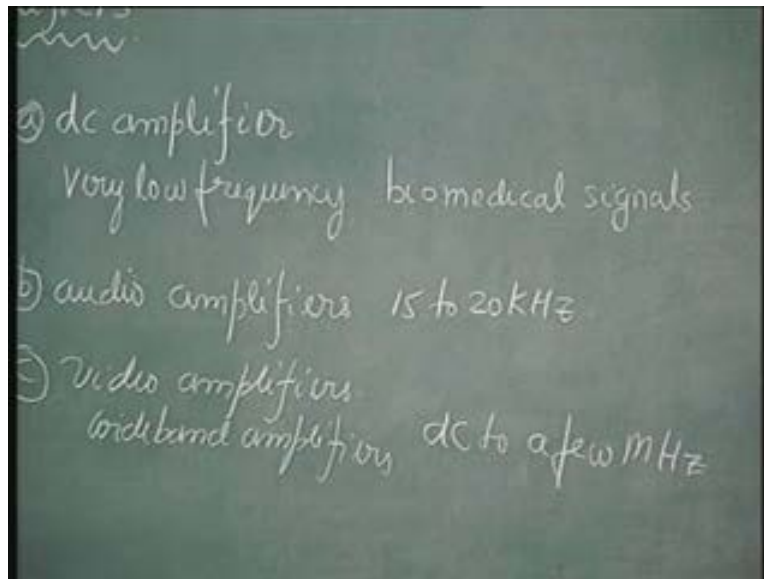 (a) dc amplifier
very low frequency biomedical signals
(b) audio amplifiers 15 to 20 kHz
(c) Video amplifiers
wideband amplifiers dc to a few MHz